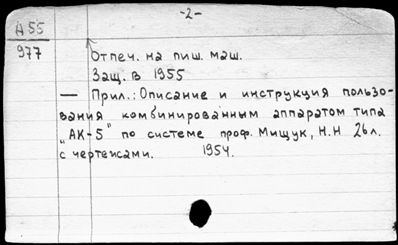 -2-
А 55
977
Отпеч. на пиш. маш.
Защ. в 1955
— Прил.: Описание и инструкция пользо-
вания комбинированным аппаратом типа
„АК-5" по системе проф. Мищук, Н.Н 26л.
с чертежами. 1954.